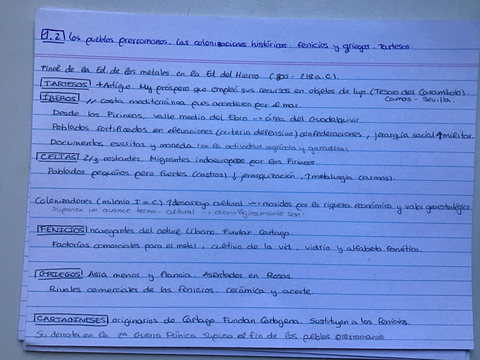 1.2 Los pueblos prerromanos. Las colonizaciones históricas: fenicios y griegos. Tartesos
Final de la Ed. de los metales en la Ed del Hierro (800 - 218 a.C).
TARTESOS + Antiguo. Muy próspero que empleó sus recursos en objetos de lujo. (Tesoro del Carambolo).
Camas - Sevilla.
ÍBEROS // costa mediterránea pues accedieron por el mar.
Desde los Pirineos, valle medio del Ebro → área del Guadalquivir.
Poblados fortificados en elevaciones (criterio defensivo) confederaciones, jerarquía social ↑ militar.
Documentos escritos y moneda con la actividad agrícola y ganadera.
CELTAS 2/3 restantes. Migrantes indoeuropeos por los Pirineos.
Poblados pequeños pero fuertes (castros) ↓ jerarquización, ↑ metalurgia (armas).
Colonizadores (milenio I a.C) ↑ desarrollo cultural → movidos por la riqueza económica y valor geoestratégico.
Suponen un avance tecno-cultural → cronológicamente son:
FENICIOS navegantes del actual Líbano. Fundan Cartago.
Factorías comerciales para el metal, cultivo de la vid, vidrio y alfabeto fonético.
GRIEGOS Asia menor y Francia. Asentados en Rosas.
Rivales comerciales de los fenicios. Cerámica y aceite.
CARTAGINESES originarios de Cartago. Fundan Cartagena. Sustituyen a los fenicios.
Su derrota en la 2ª Guerra Púnica supuso el fin de los pueblos prerromanos.